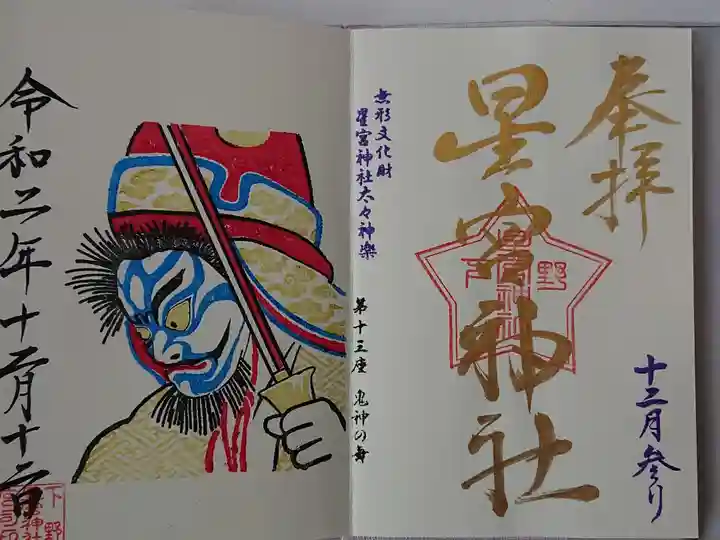 奉拝
星宮神社
下野
十二月参り
無形文化財
星宮神社太々神楽
第十三座 鬼神の舞
令和二年十二月十二日
下野